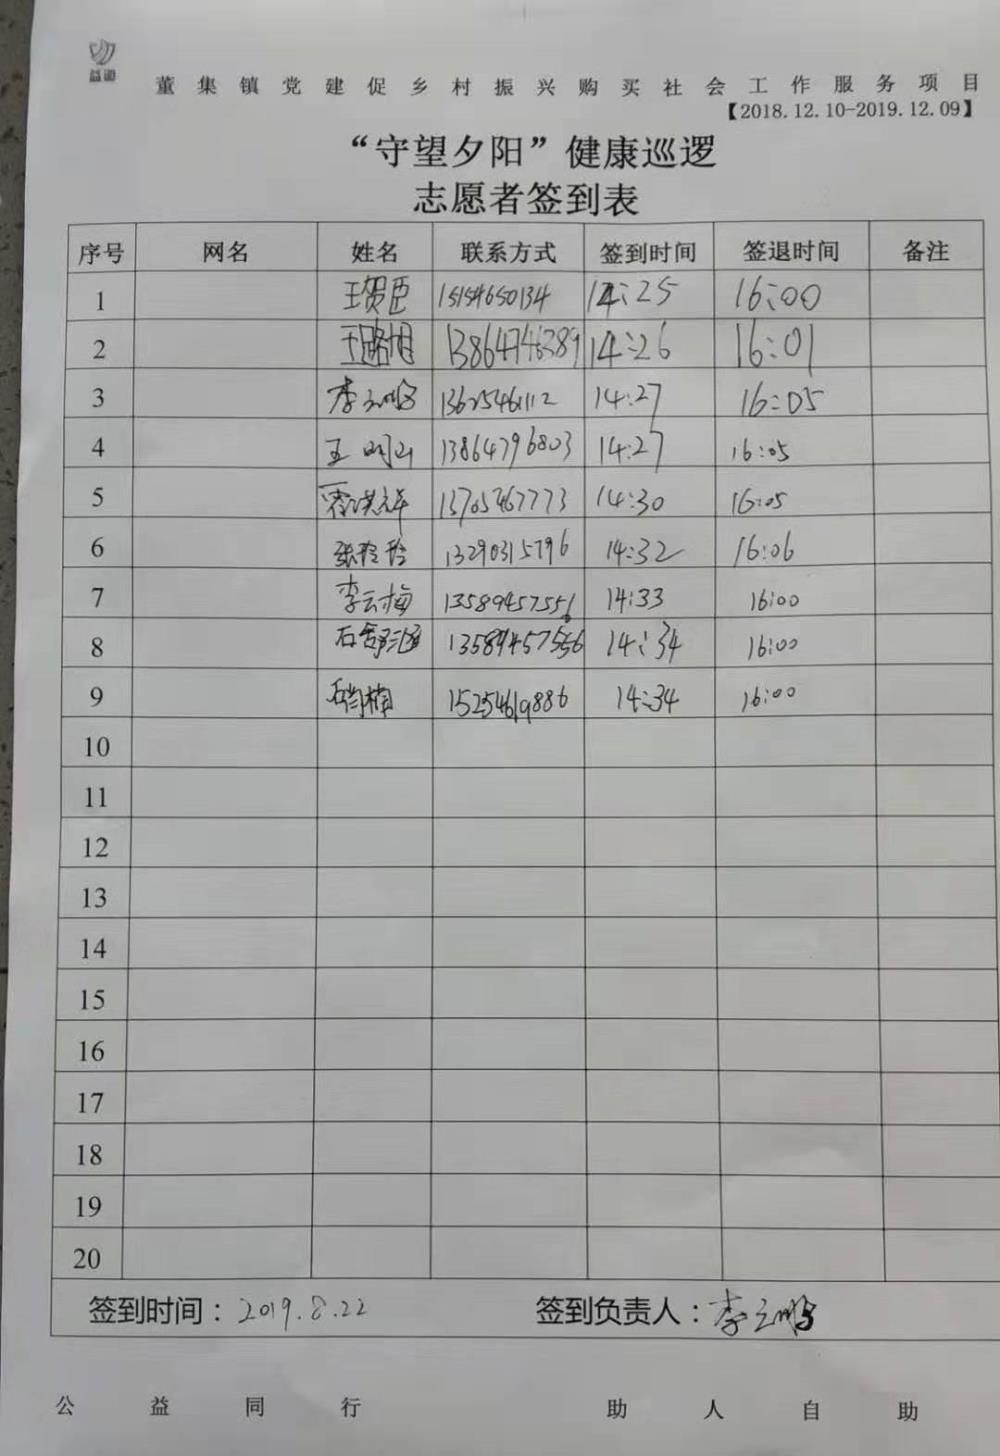 益道
董集镇党建促乡村振兴购买社会工作服务项目
【2018.12.10-2019.12.09】
“守望夕阳”健康巡逻
志愿者签到表
序号 网名 姓名 联系方式 签到时间 签退时间 备注
1 王贺臣 15154650134 14:25 16:00
2 13864746389 14:26 16:01
3 李云鹏 13625461112 14:27 16:05
4 王明山 13864796803 14:27 16:05
5 13705467773 14:30 16:05
6 张玲玲 13290315796 14:32 16:06
7 李云梅 13589457556 14:33 16:00
8 石舒涵 13589457556 14:34 16:00
9 15254619886 14:34 16:00
10
11
12
13
14
15
16
17
18
19
20
签到时间：2019.8.22 签到负责人：李云鹏
公益同行 助人自助